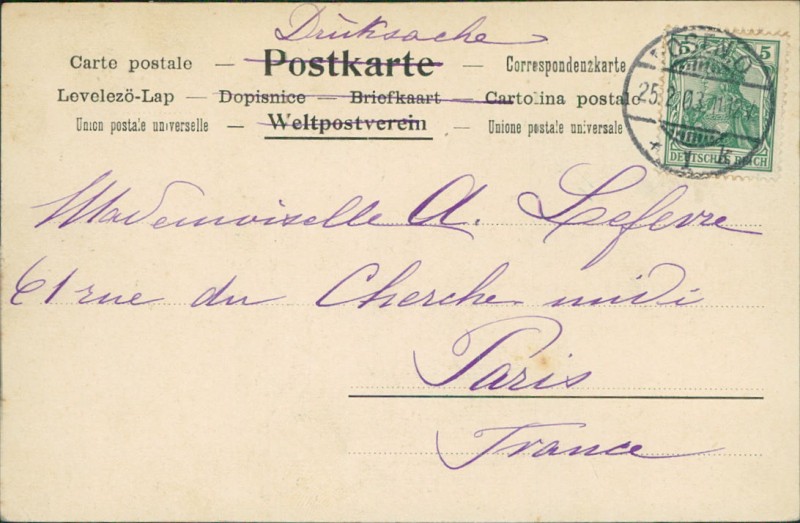 Drucksache
Carte postale — Postkarte — Correspondenzkarte
Levelezö-Lap — Dopisnice — Briefkaart — Cartolina postale
Union postale universelle — Weltpostverein — Unione postale universale
5
25.2.03
DEUTSCHES REICH
Mademoiselle A. Lefevre
61 rue du Cherche midi
Paris
France